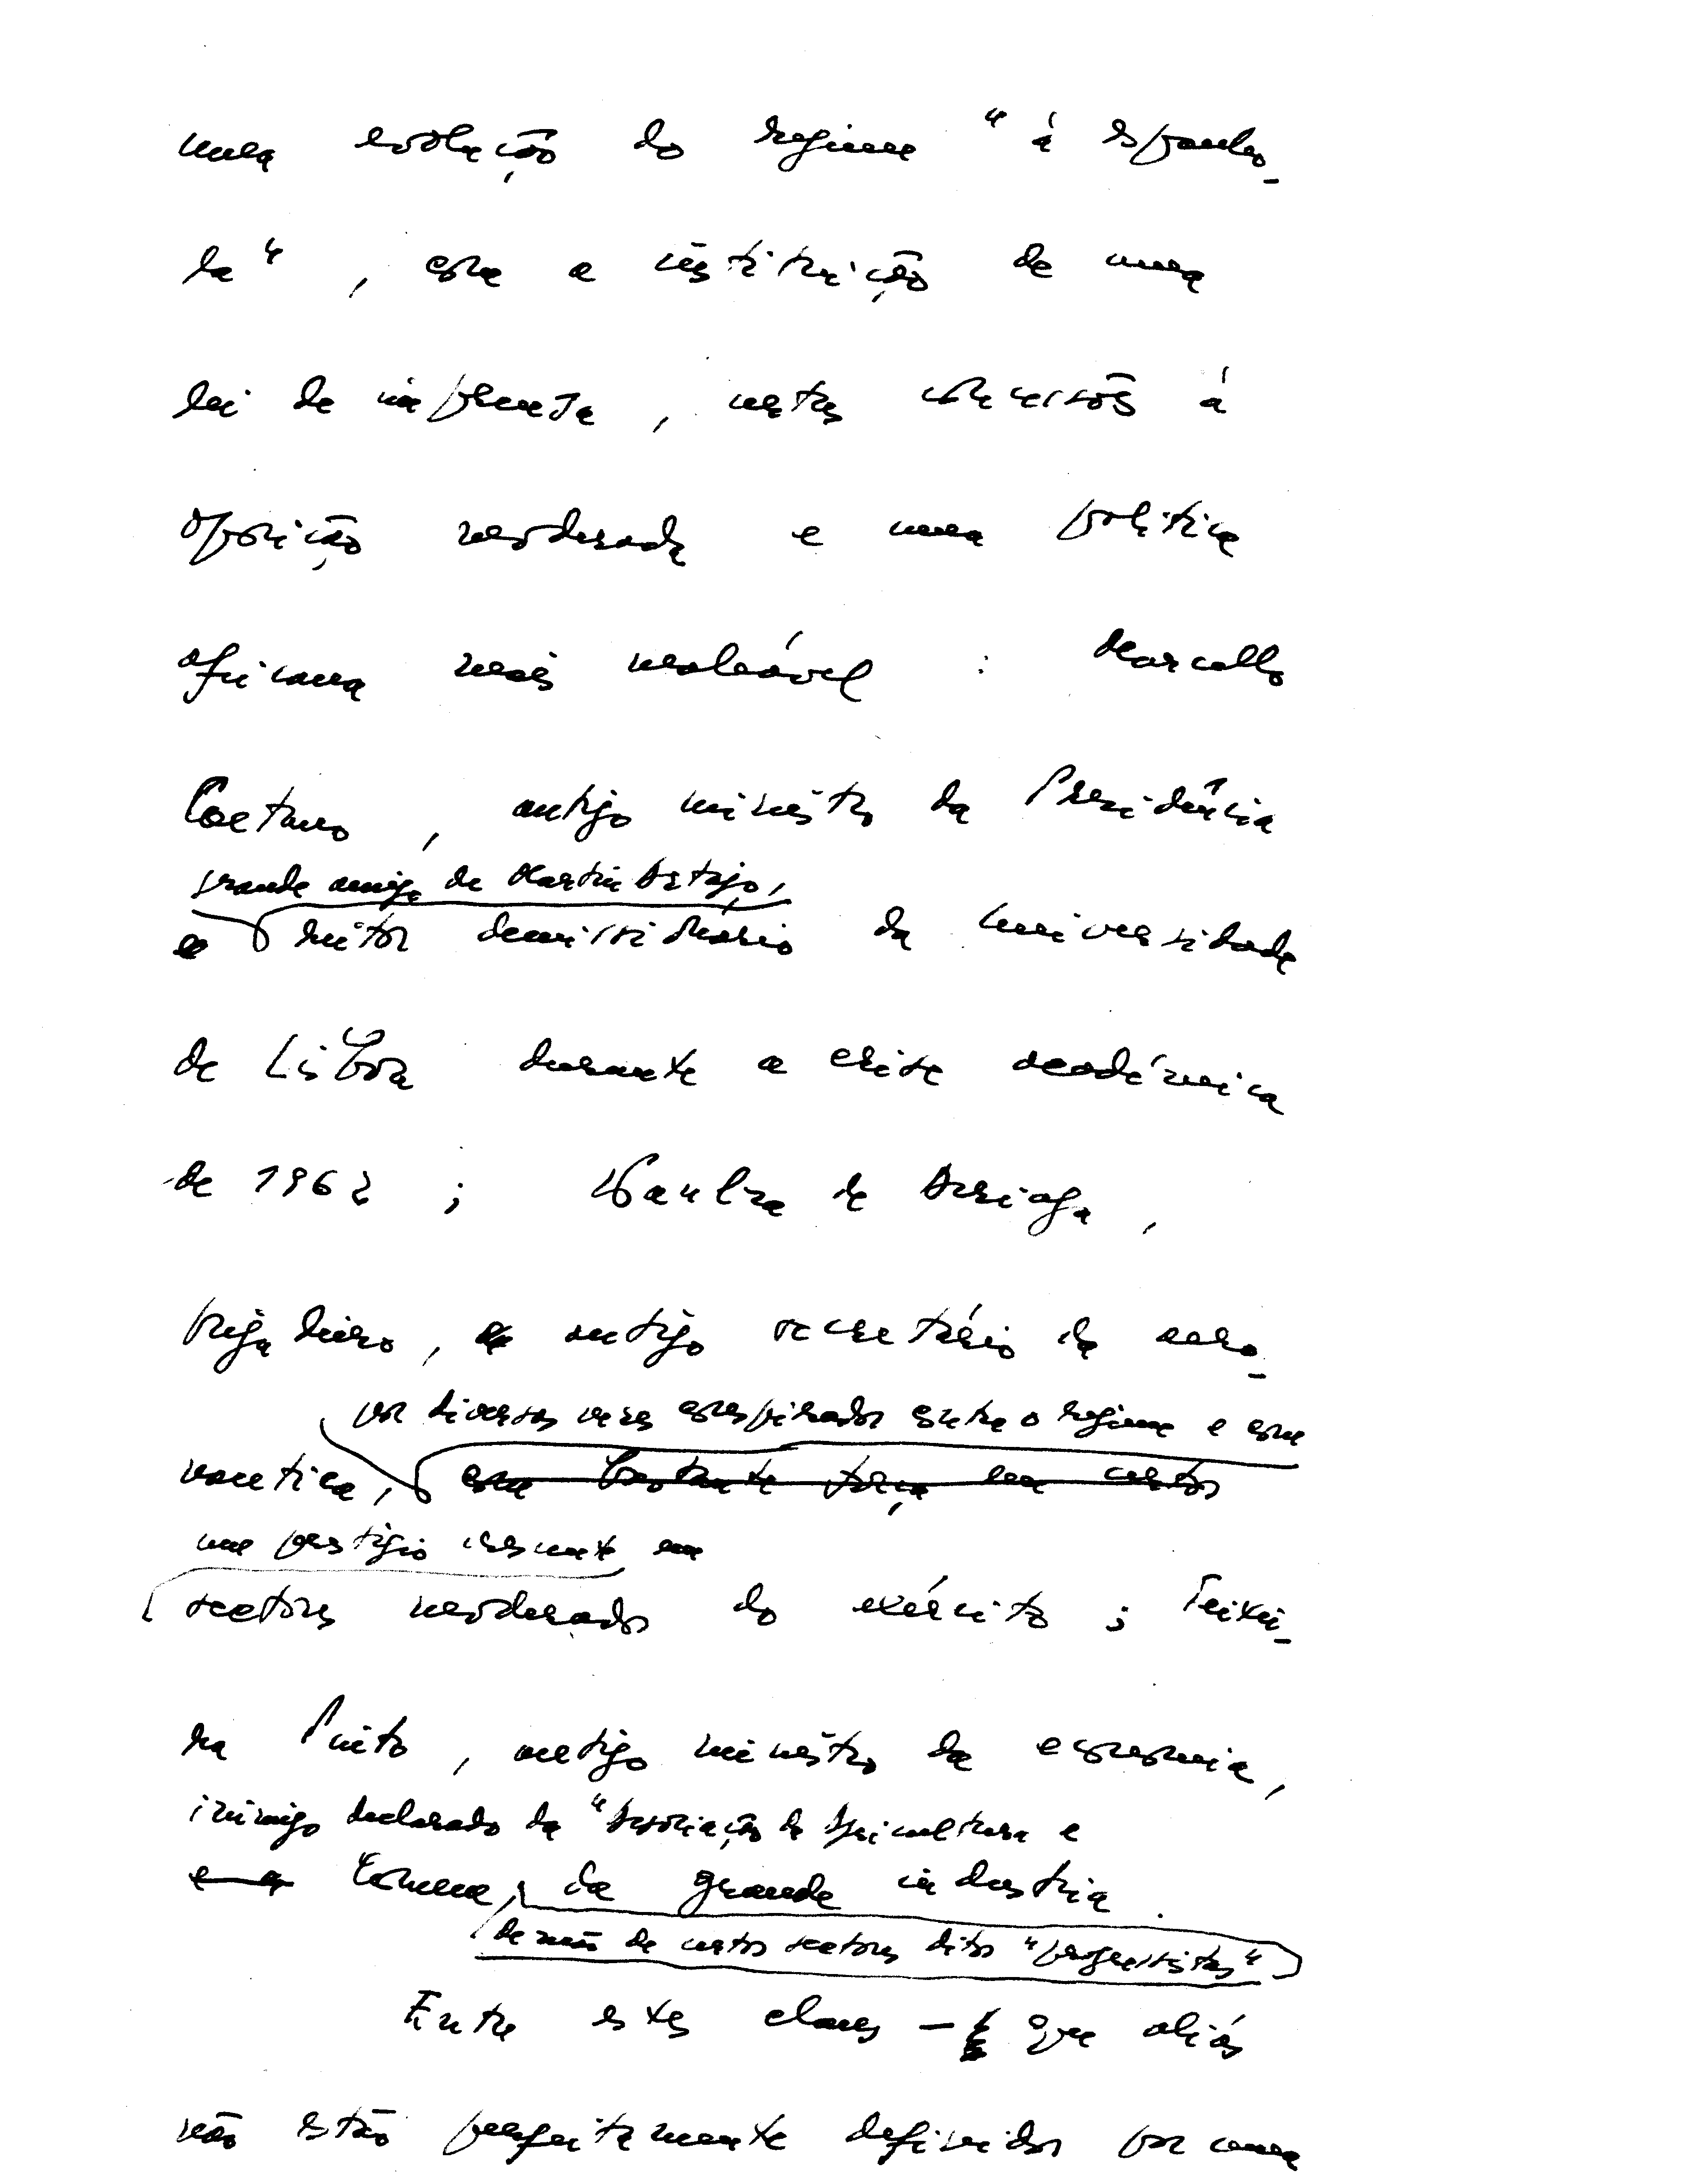 uma evolução do regime "à espanho-
la", com a instituição de uma
lei de imprensa, certas concessões à
oposição moderada e uma política
africana mais maleável : Marcello
Caetano, antigo ministro da Presidência
grande amigo de Martin Artajo,
e reitor demissionário da Universidade
de Lisboa durante a crise académica
de 1962 ; Kaulza de Arriaga,
brigadeiro, antigo secretário da aero-
por diversas vezes conspirador contra o regime e com
náutica, com bastante força em certos
um prestígio crescente em
sectores moderados do exército ; Teixei-
ra Pinto, antigo ministro da economia,
inimigo declarado da "Associação da Agricultura e
da grande indústria.
de certos sectores ditos "progressistas"
Entre estes clans - que aliás
não estão perfeitamente definidos por uma